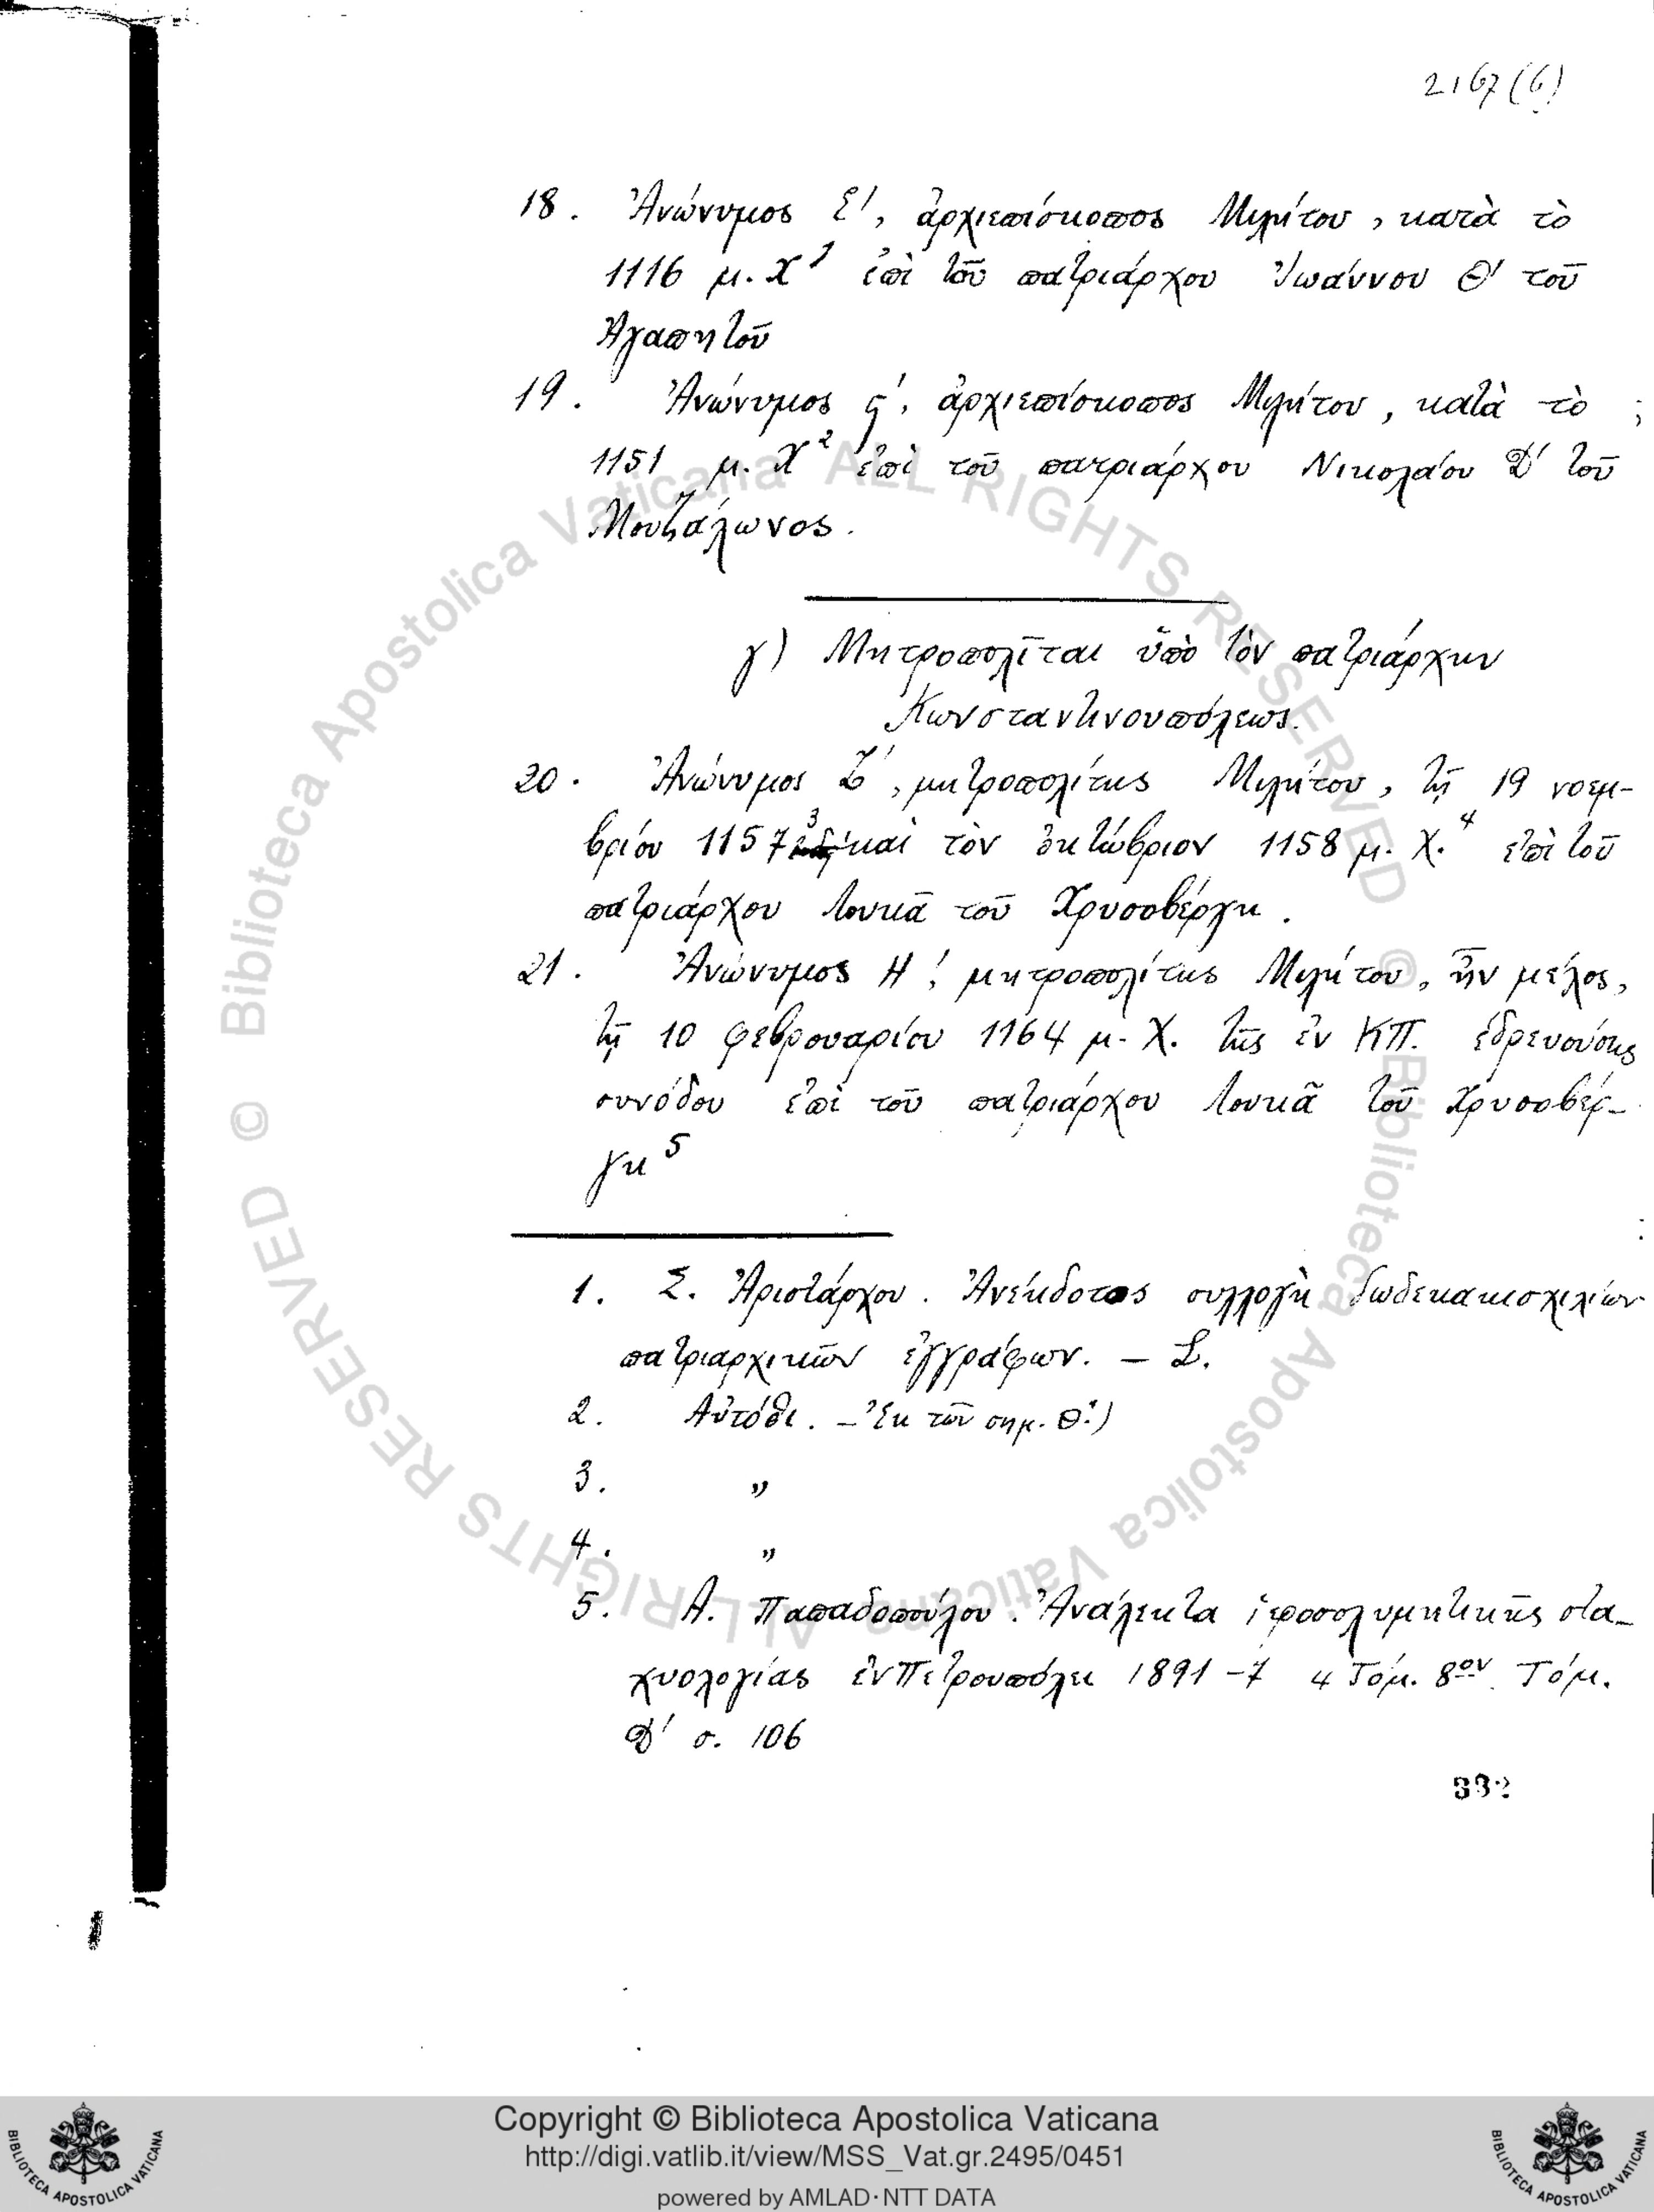 2167(6)
18. Ἀνώνυμος Ε', ἀρχιεπίσκοπος Μιλήτου, κατὰ τὸ
1116 μ. Χ¹ ἐπὶ τοῦ πατριάρχου Ἰωάννου Θ' τοῦ
Ἀγαπητοῦ
19. Ἀνώνυμος ϛ', ἀρχιεπίσκοπος Μιλήτου, κατὰ τὸ
1151 μ. Χ² ἐπὶ τοῦ πατριάρχου Νικολάου Δ' τοῦ
Μουζάλωνος.
γ) Μητροπολῖται ὑπὸ τὸν πατριάρχην
Κωνσταντινουπόλεως.
20. Ἀνώνυμος Ζ', μητροπολίτης Μιλήτου, τῇ 19 νοεμ-
βρίου 1157³ καὶ τὸν ὀκτώβριον 1158 μ. Χ.⁴ ἐπὶ τοῦ
πατριάρχου Λουκᾶ τοῦ Χρυσοβέργη.
21. Ἀνώνυμος Η', μητροπολίτης Μιλήτου, ἦν μέλος,
τῇ 10 φεβρουαρίου 1164 μ. Χ. τῆς ἐν ΚΠ. ἑδρευούσης
συνόδου ἐπὶ τοῦ πατριάρχου Λουκᾶ τοῦ Χρυσοβέρ-
γη⁵
1. Σ. Ἀριστάρχου. Ἀνέκδοτος συλλογὴ δωδεκακισχιλίων
πατριαρχικῶν ἐγγράφων. –
2. Αὐτόθι. – Ἐκ τῶν σημ. Θ.)
3. „
4. „
5. Α. Παπαδοπούλου. Ἀνάλεκτα ἱεροσολυμητικῆς στα-
χυολογίας ἐν Πετρουπόλει 1891-7 4 Τόμ. 8ον. Τόμ.
Δ' σ. 106
332
© Biblioteca Apostolica Vaticana ALL RIGHTS RESERVED © Biblioteca Apostolica Vaticana ALL RIGHTS RESERVED
Copyright © Biblioteca Apostolica Vaticana
http://digi.vatlib.it/view/MSS_Vat.gr.2495/0451
powered by AMLAD·NTT DATA
BIBLIOTECA APOSTOLICA VATICANA
BIBLIOTECA APOSTOLICA VATICANA